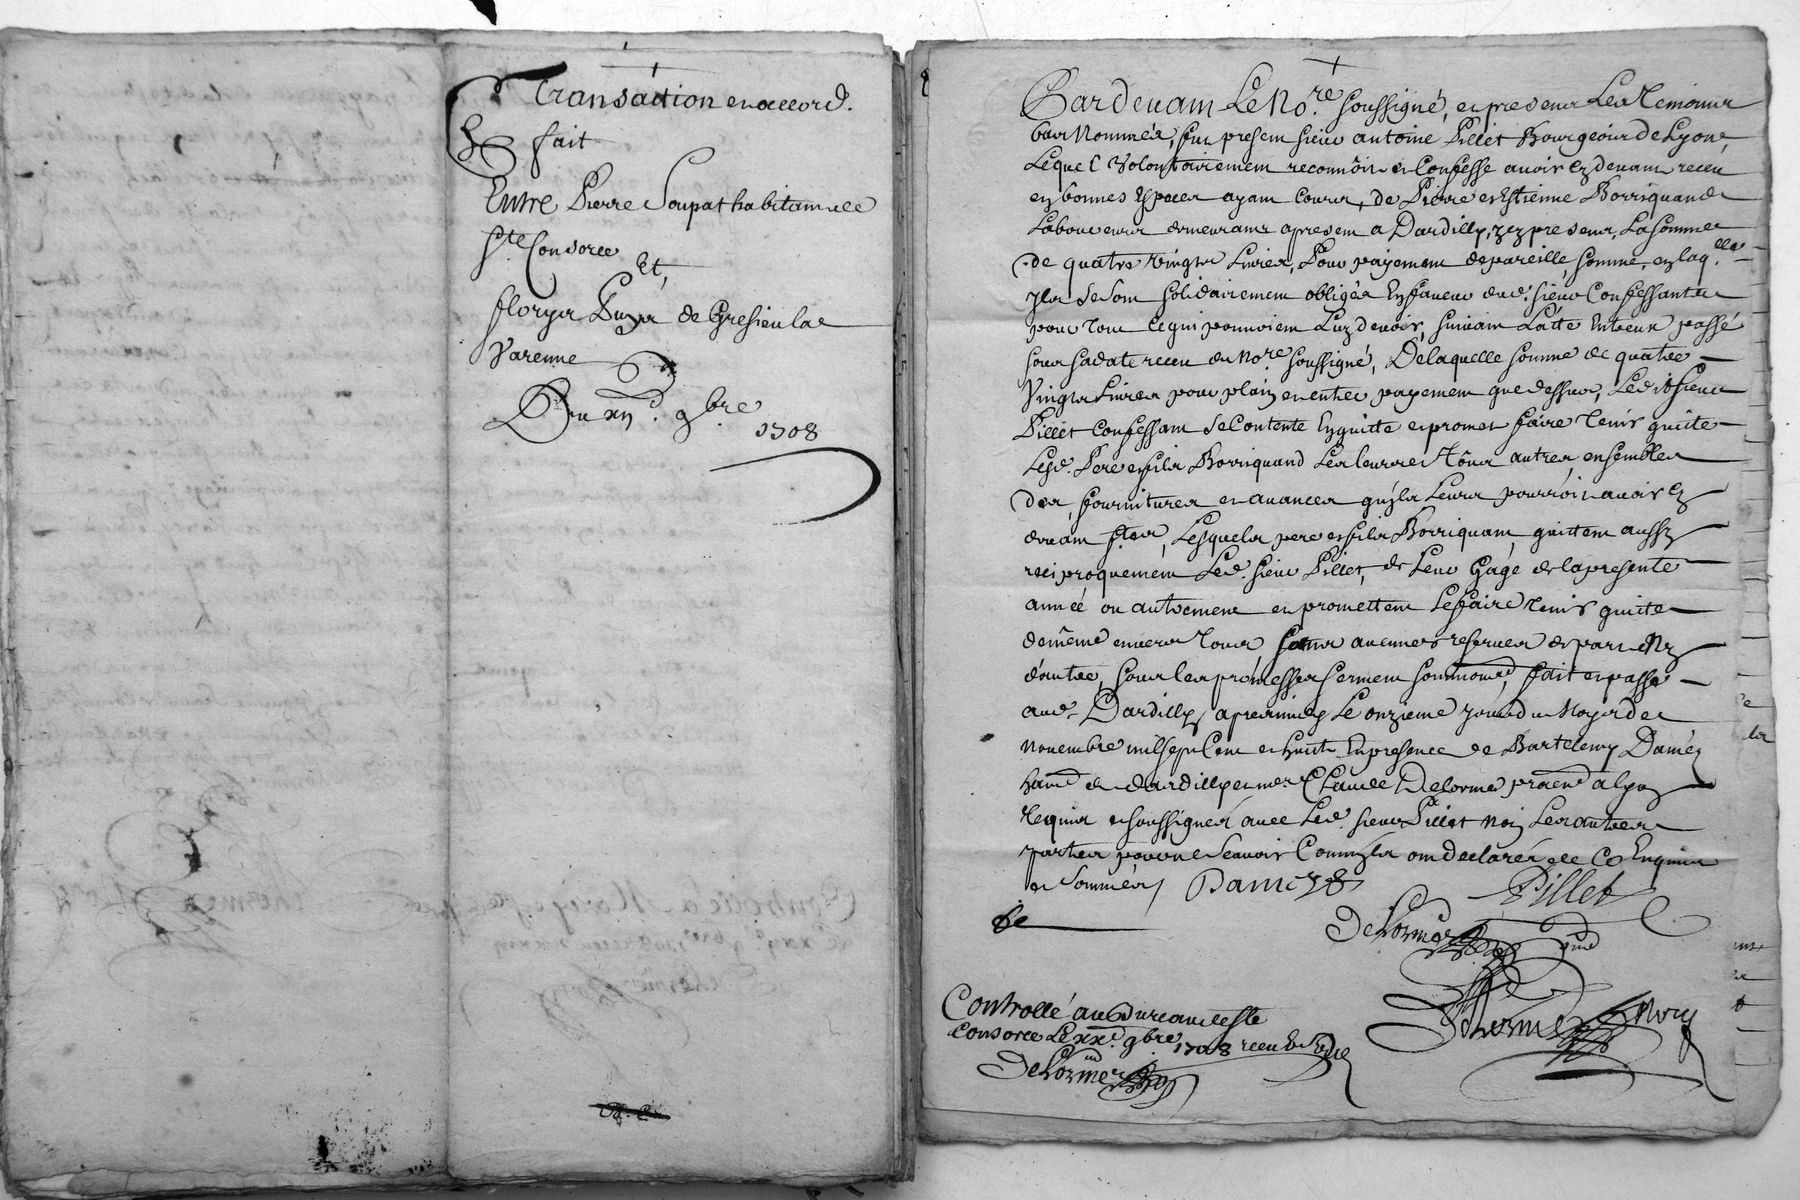 Transaction en accord.
fait
Entre Pierre Soupat habitant de
Ste Consorce
Et,
florys Puys de Gresieu la
Varenne
Du xij.e 9bre
1708
Pardevant Le No.re soussigné, et presens Les Temoins
bas Nommés, fut present sieur antoine Pillet Bourgeois de Lyon,
Lequel Volontairement reconnoit et Confesse avoir cydevant receu
en bonnes Especes ayant Cours, de Pierre et Estienne Borriquand
Laboureurs demeurants apresent a Dardilly, icy presens, La somme
de quatre vingts Livres, Pour payement de pareille somme, en laq.elle
Ils se sont solidairement obligés En faveur dud. sieur Confessant
pour tout ce qui pouvoient Luy devoir, suivant L'acte Entreux passé
sous sa date receu du No.re soussigné, De laquelle somme de quatre
Vingts Livres pour plain et entier payement que dessus, Ledit sieur
Pillet Confessant se Contente En quitte et promet faire tenir quitte
Lesd. Pere et fils Borriquand Les Leurs et tous autres, ensemble
des fournitures et avances qu'il Leurs pourroit avoir cy
devant faites, Lesquels pere et fils Borriquant, quittent aussy
reciproquement Led. sieur Pillet, de Leur Gage de la presente
année ou autrement et promettent Le faire tenir quitte
de même envers tous, sans aucunes reserves de part ny
d'autre, sous les promesses serment soumions, fait et passé
aud. Dardilly apresmidy Le onzieme jour du Moys de
Novembre mil sept Cent et huit En presence de Bartelemy Daméz
hant de Dardilly et me. Claude Delorme praend a Lyon
Requis et soussignés avec Led. sieur Pillet Non Les autres
parties pour ne Scavoir Comm'ils ont declarés de ce Enquis
et Sommés / Damez Pillet
De Lorme
Delorme No.re
Controllé au Bureau de Ste
Consorce Le xx.e 9bre 1708 receu
De Lorme